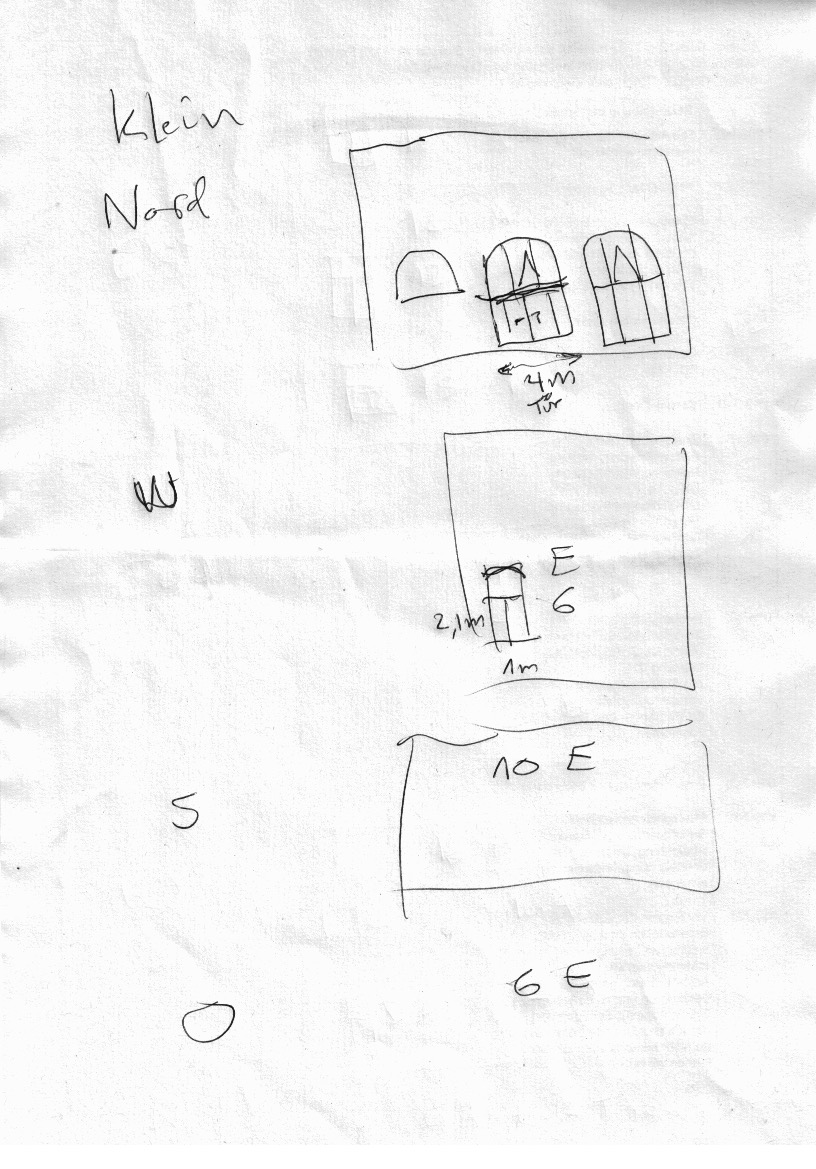 Klein
Nord
4m
Tür
W
E
6
2,1m
1m
10 E
S
6 E
O